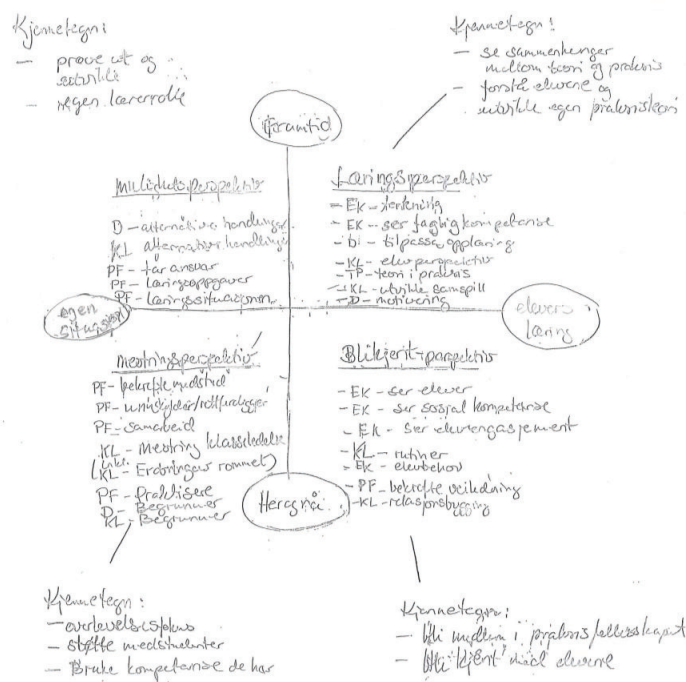 Kjennetegn:
— prøve ut og
utvikle
— egen lærerrolle
Kjennetegn:
— se sammenhenger
mellom teori og praksis
— forstå elevene og
utvikle egen praksisteori
Framtid
Mulighetsperspektiv
D – alternative handlinger
KL alternative handlinger
PF – tar ansvar
PF – læringsoppgaver
PF – læringssituasjonen
Læringsperspektiv
– EK – tenkning
– EK – ser faglig kompetanse
– D – tilpassa opplæring
– KL – elevperspektiv
– TP – teori i praksis
– KL – utvikle samspill
– D – motivering
egen
situasjon
elevers
læring
Mestringsperspektiv
PF – bekrefte medstud
PF – unnskylder/rettferdiggjør
PF – samarbeid
KL – Mestring klasseledelse
KL – Endringer i rommet)
PF – Praktisere
D – Begrunner
KL – Begrunner
Blikjent-perspektiv
– EK – ser elever
– EK – ser sosial kompetanse
– EK – ser elevengasjement
– KL – rutiner
– EK – elevbehov
– PF – bekrefte veiledning
– KL – relasjonsbygging
Her og nå
Kjennetegn:
— overlevelsesfokus
— støtte medstudenter
— Bruke kompetanse de har
Kjennetegn:
— bli medlem i praksisfellesskapet
— bli "kjent" med elevene